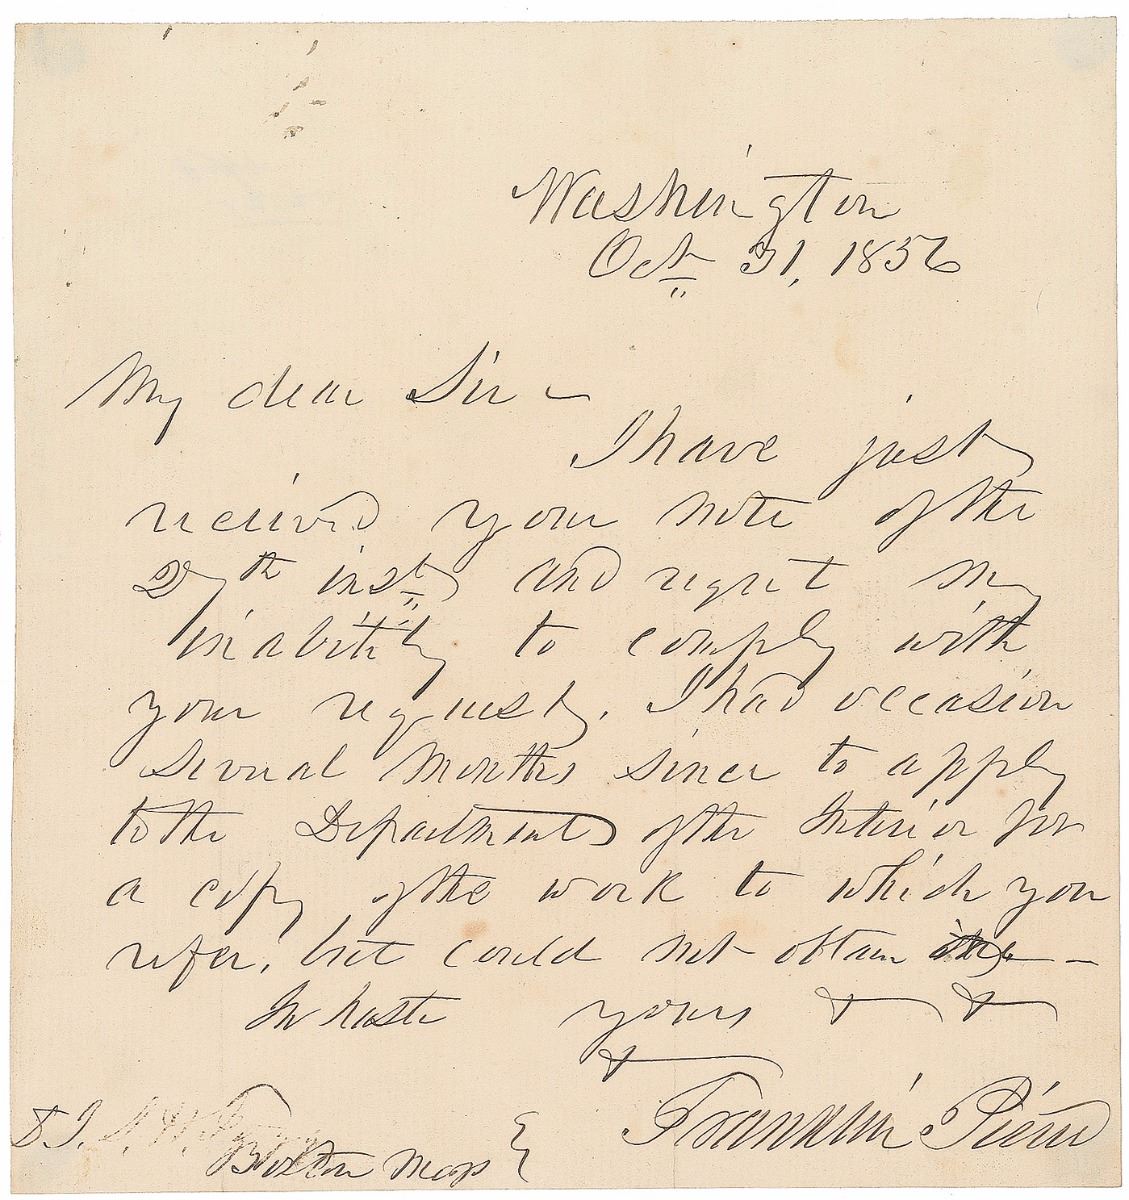 Washington
Oct 31, 1856
My dear Sir –
I have just
received your note of the
27th inst and regret my
inability to comply with
your request. I had occasion
several months since to apply
to the Department of the Interior for
a copy of the work to which you
refer, but could not obtain one –
In haste yours & &
&
Franklin Pierce
Boston Mass